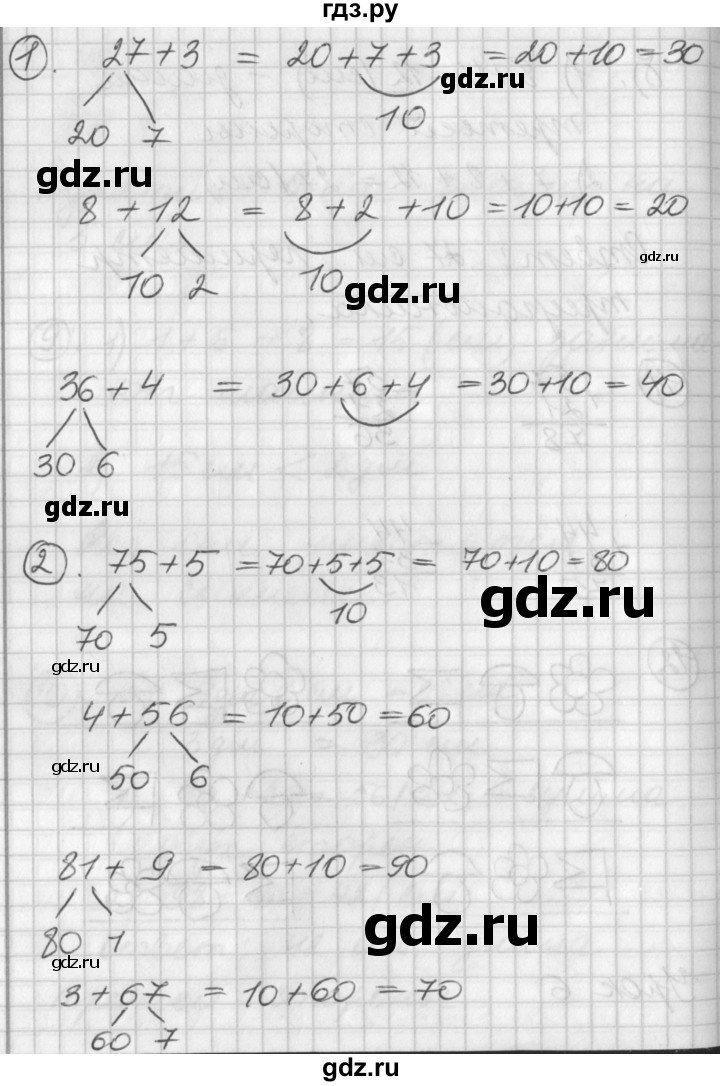 гдз.ру
1. 27+3 = 20+7+3 = 20+10=30
gdz.ru
20 7
10
gdz.ru
8+12 = 8+2+10=10+10=20
gdz.ru
10 2
10
gdz.ru
36+4 = 30+6+4 = 30+10=40
30 6
gdz.ru
2. 75+5 =70+5+5 = 70+10=80
gdz.ru
10
70 5
gdz.ru
4+56 = 10+50=60
gdz.ru
50 6
81+9 = 80+10=90
gdz.ru
80 1
gdz.ru
3+67 = 10+60 = 70
gdz.ru
60 7
gdz.ru